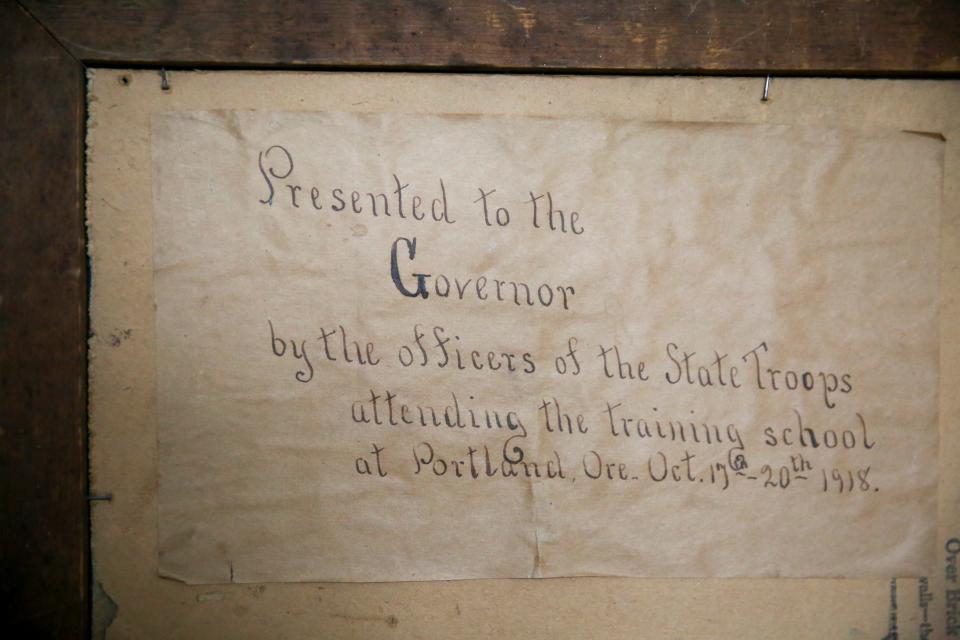 Presented to the
Governor
by the officers of the State Troops
attending the training school
at Portland, Ore. Oct. 17th-20th 1918.
Over Brick
walls-th